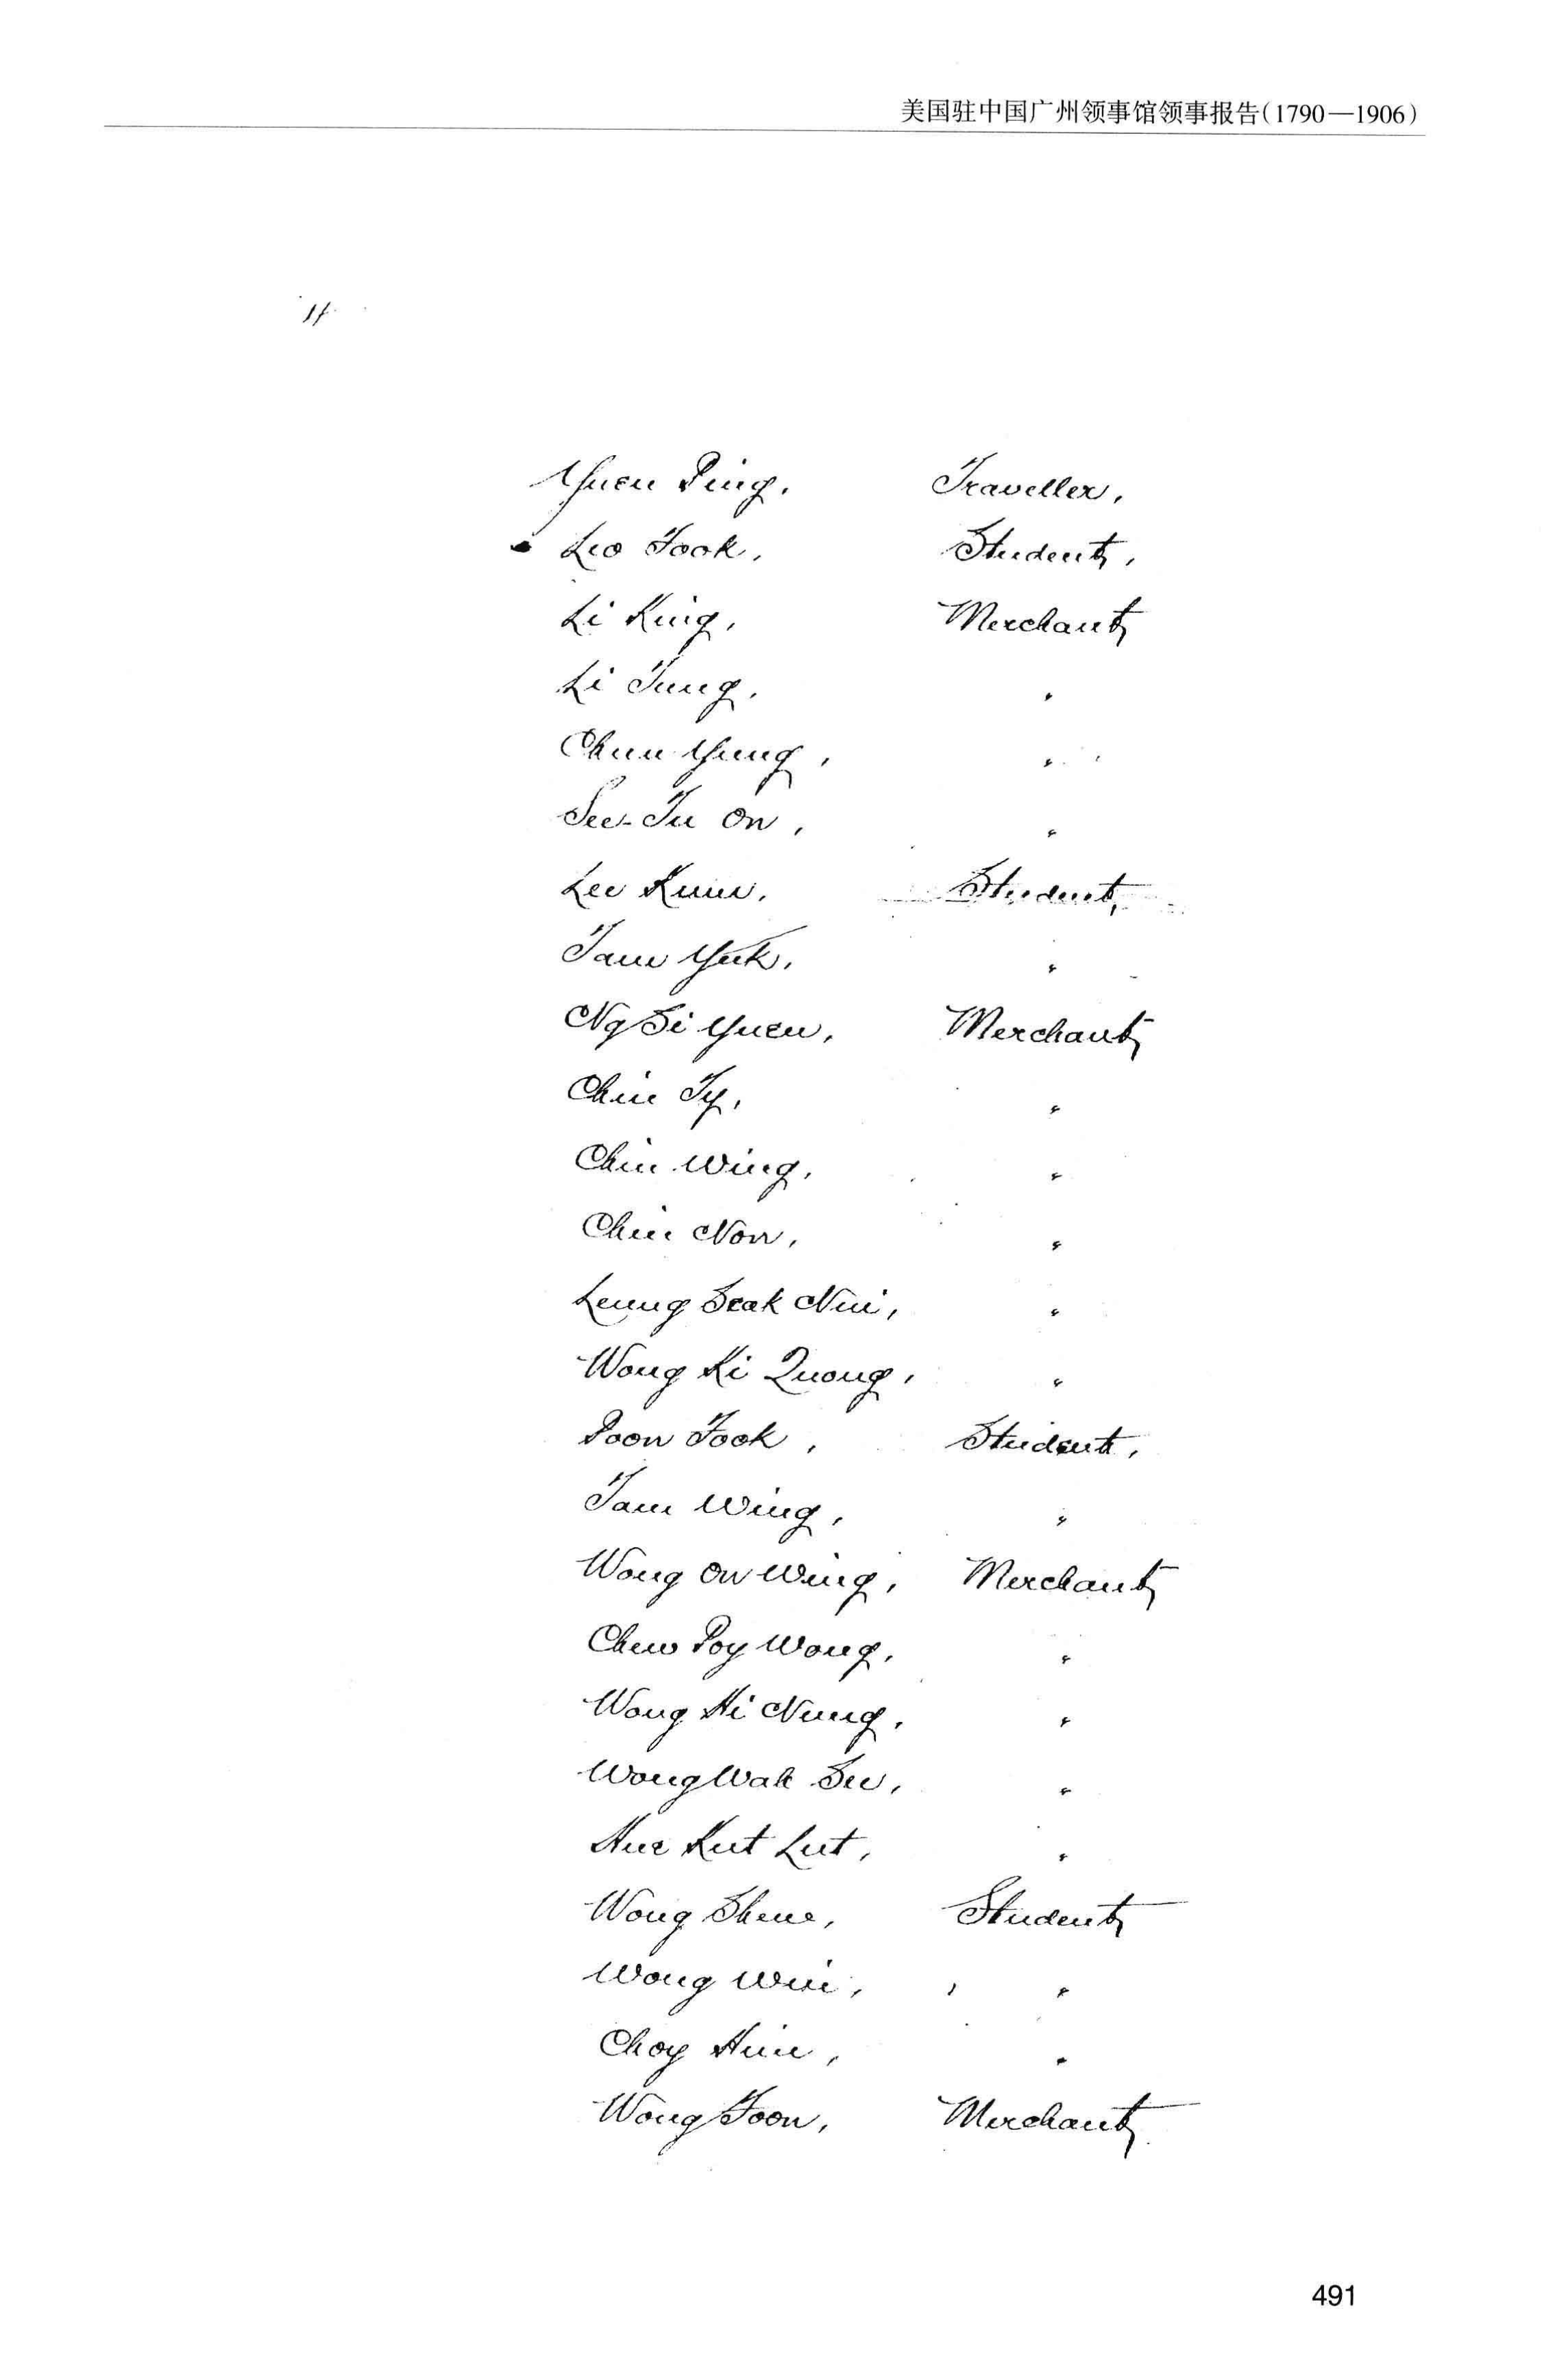 美国驻中国广州领事馆领事报告(1790—1906)
Yuen Ping, Traveller,
Leo Fook, Student,
Li King, Merchant
Li Tung, "
Chun Yung, "
See-Tu On, "
Lee Kum, Student,
Tam Yuk, "
Ng Si Yuen, Merchant
Chin Ty, "
Chin Wing, "
Chin Non, "
Leung Seak Nui, "
Wong Ki Quong, "
Poon Fook, Student,
Tam Wing, "
Wong On Wing, Merchant
Chew Poy Wong, "
Wong Hi Nung, "
Wong Wah See, "
Hue Kut Lut, "
Wong Shene, Student
Wong Wui, "
Choy Him, "
Wong Foon, Merchant
491